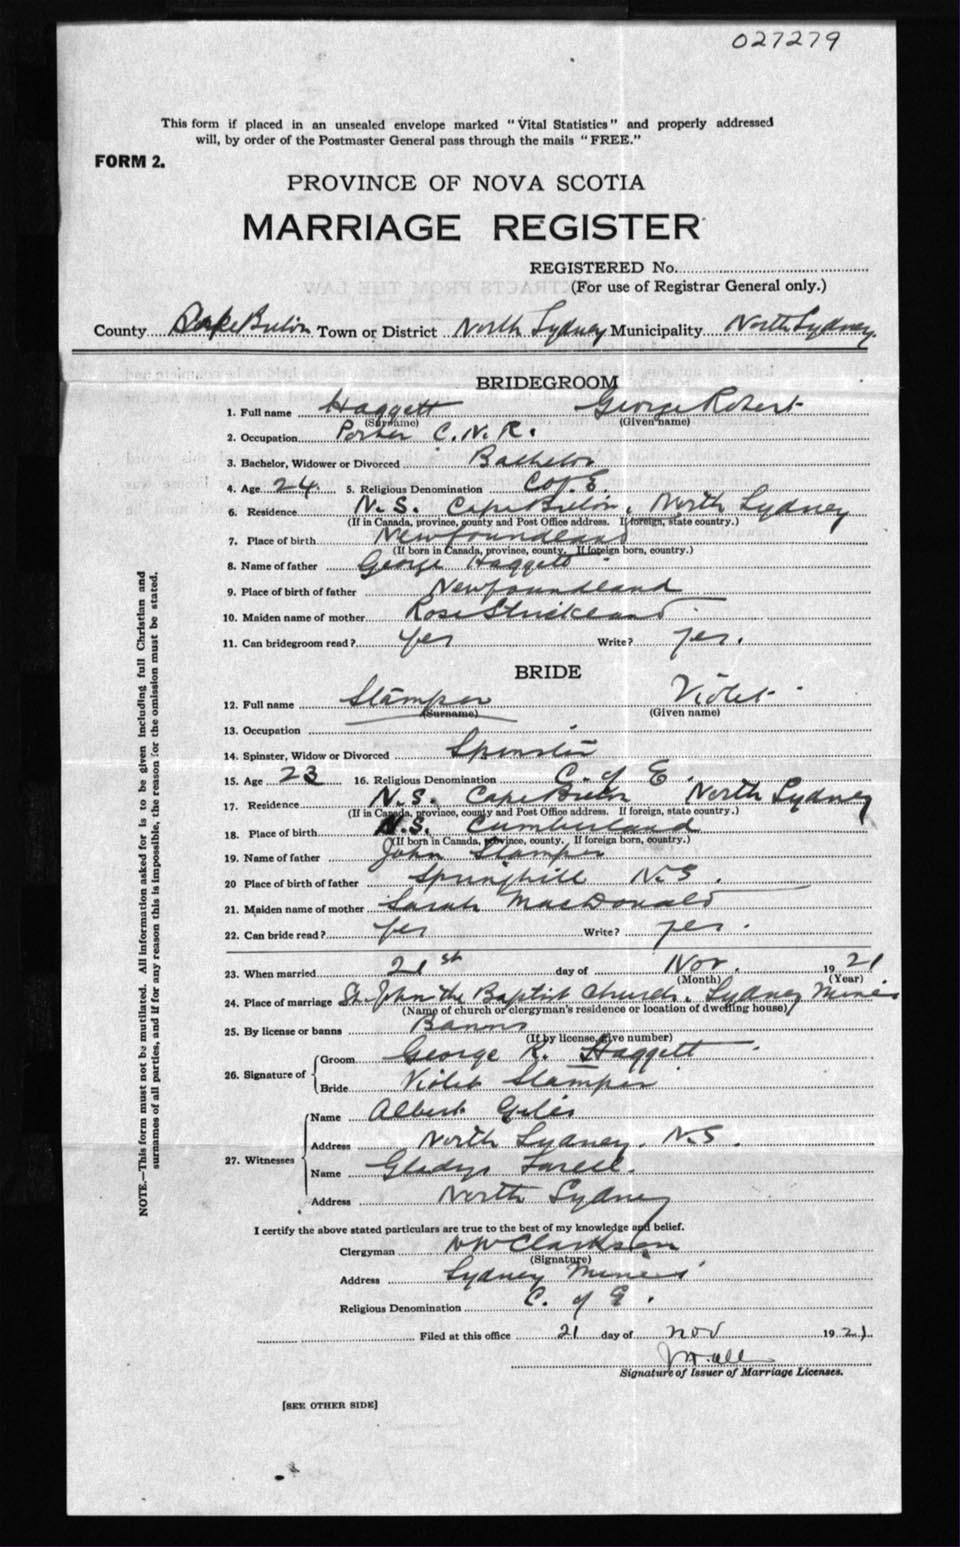 027279
This form if placed in an unsealed envelope marked "Vital Statistics" and properly addressed
will, by order of the Postmaster General pass through the mails "FREE."
FORM 2.
PROVINCE OF NOVA SCOTIA
MARRIAGE REGISTER
REGISTERED No.
(For use of Registrar General only.)
County Cape Breton Town or District North Sydney Municipality North Sydney
BRIDEGROOM
1. Full name Haggett George Robert
(Surname) (Given name)
2. Occupation Porter C.N.R.
3. Bachelor, Widower or Divorced Bachelor
4. Age 24 5. Religious Denomination C of E.
6. Residence N.S. Cape Breton, North Sydney
(If in Canada, province, county and Post Office address. If foreign, state country.)
7. Place of birth Newfoundland
(If born in Canada, province, county. If foreign born, country.)
8. Name of father George Haggett
9. Place of birth of father Newfoundland
10. Maiden name of mother Rose Strickland
11. Can bridegroom read? yes Write? yes.
BRIDE
12. Full name Stamper Violet
(Surname) (Given name)
13. Occupation
14. Spinster, Widow or Divorced Spinster
15. Age 23 16. Religious Denomination C. of E.
17. Residence N.S. Cape Breton North Sydney
(If in Canada, province, county and Post Office address. If foreign, state country.)
18. Place of birth N.S. Cumberland
(If born in Canada, province, county. If foreign born, country.)
19. Name of father John Stamper
20 Place of birth of father Springhill N.S.
21. Maiden name of mother Sarah MacDonald
22. Can bride read? yes Write? yes.
23. When married 21st day of Nov. 1921
(Month) (Year)
24. Place of marriage St. John the Baptist Church, Sydney Mines
(Name of church or clergyman's residence or location of dwelling house)
25. By license or banns Banns
(If by license, give number)
26. Signature of Groom George R. Haggett
Bride Violet Stamper
27. Witnesses Name Albert Giles
Address North Sydney. N.S.
Name Gladys
Address North Sydney
I certify the above stated particulars are true to the best of my knowledge and belief.
Clergyman Clarkson
(Signature)
Address Sydney Mines
Religious Denomination C. of E.
Filed at this office 21 day of nov 1921.
Signature of Issuer of Marriage Licenses.
[SEE OTHER SIDE]
NOTE.—This form must not be mutilated. All information asked for is to be given including full Christian and
surnames of all parties, and if for any reason this is impossible, the reason for the omission must be stated.